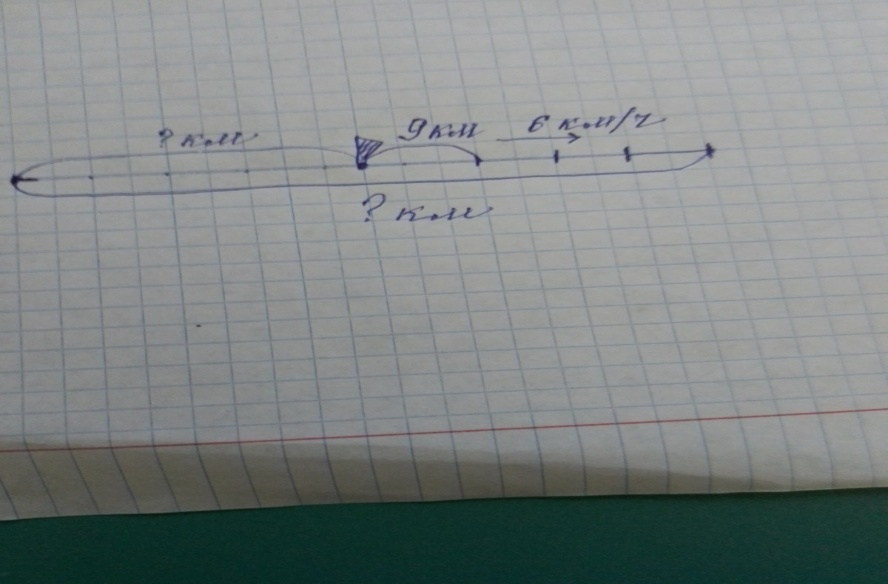 ? км 9 км 6 км/ч
? км